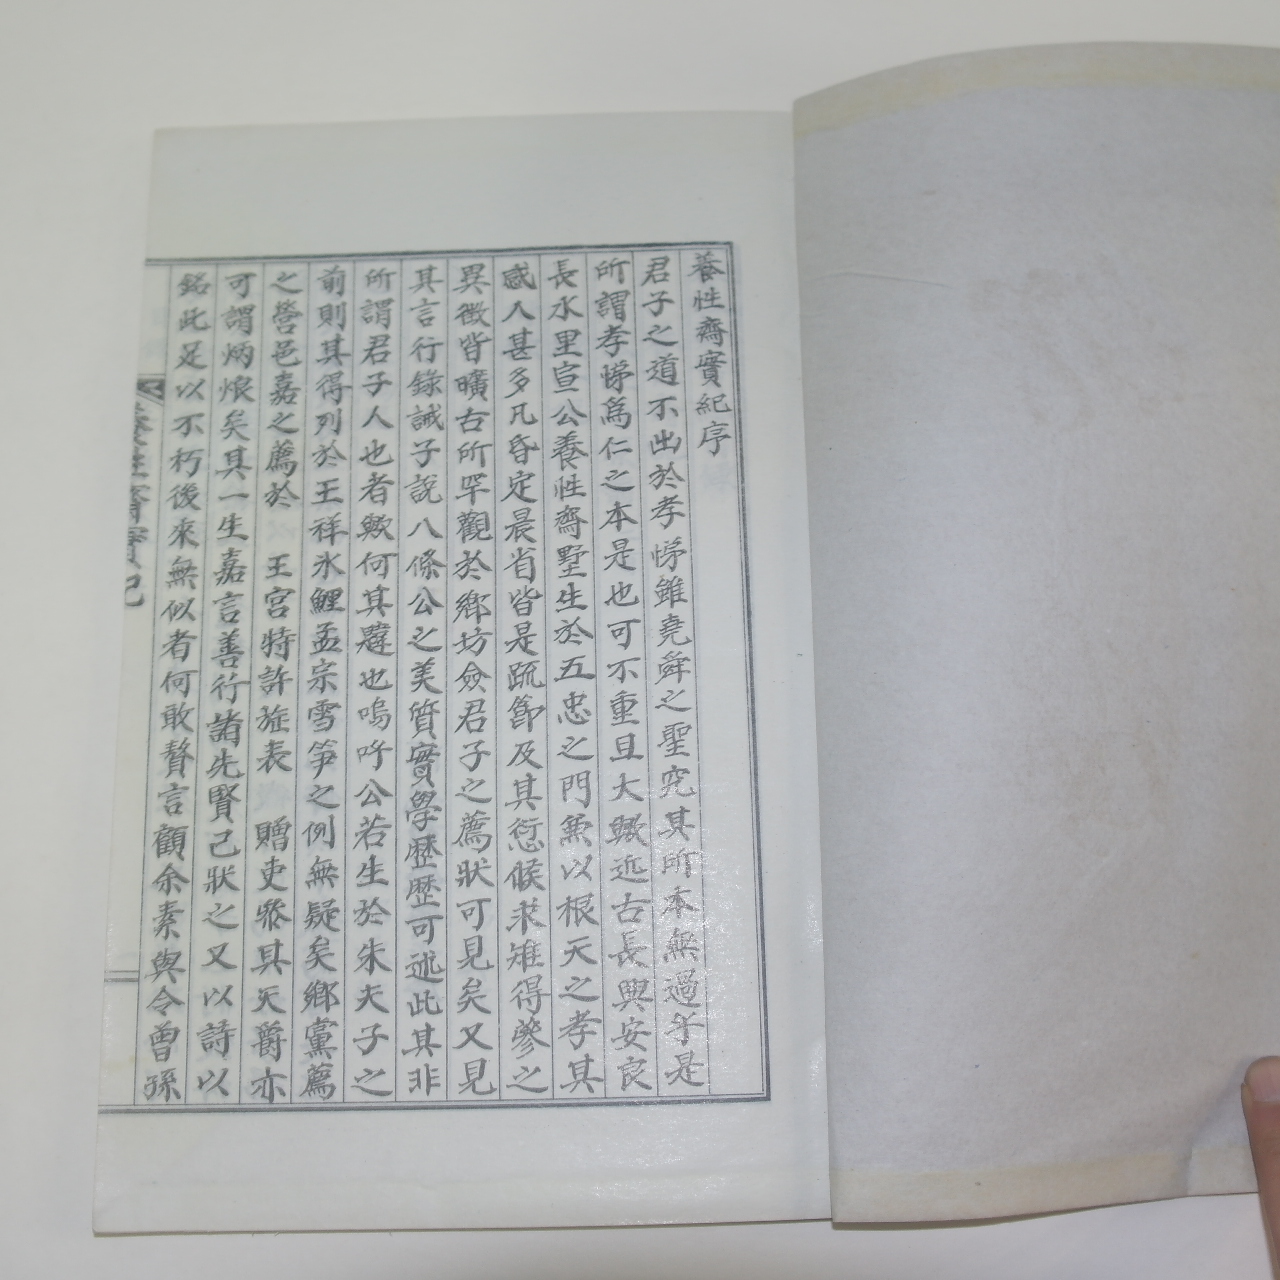 養性齋實紀序
君子之道不出於孝悌雖堯舜之聖究其所本無過乎是
所謂孝悌爲仁之本是也可不重且大歟近古長興安良
長水里宣公養性齋墅生於五忠之門無以根天之孝其
感人甚多凡昏定晨省皆是疏節及其愆候求雉得蔘之
異徵皆曠古所罕觀於鄉坊僉君子之薦狀可見矣又見
其言行錄誡子說八條公之美質實學歷歷可述此其非
所謂君子人也者歟何其韙也嗚呼公若生於朱夫子之
前則其得列於王祥氷鯉孟宗雪笋之例無疑矣鄉黨薦
之營邑嘉之薦於 王宮特許旌表 贈吏叅其天爵亦
可謂炳烺矣其一生嘉言善行諸先賢己狀之又以詩以
銘此足以不朽後來無似者何敢贅言顧余素與令曾孫
養性齋實記